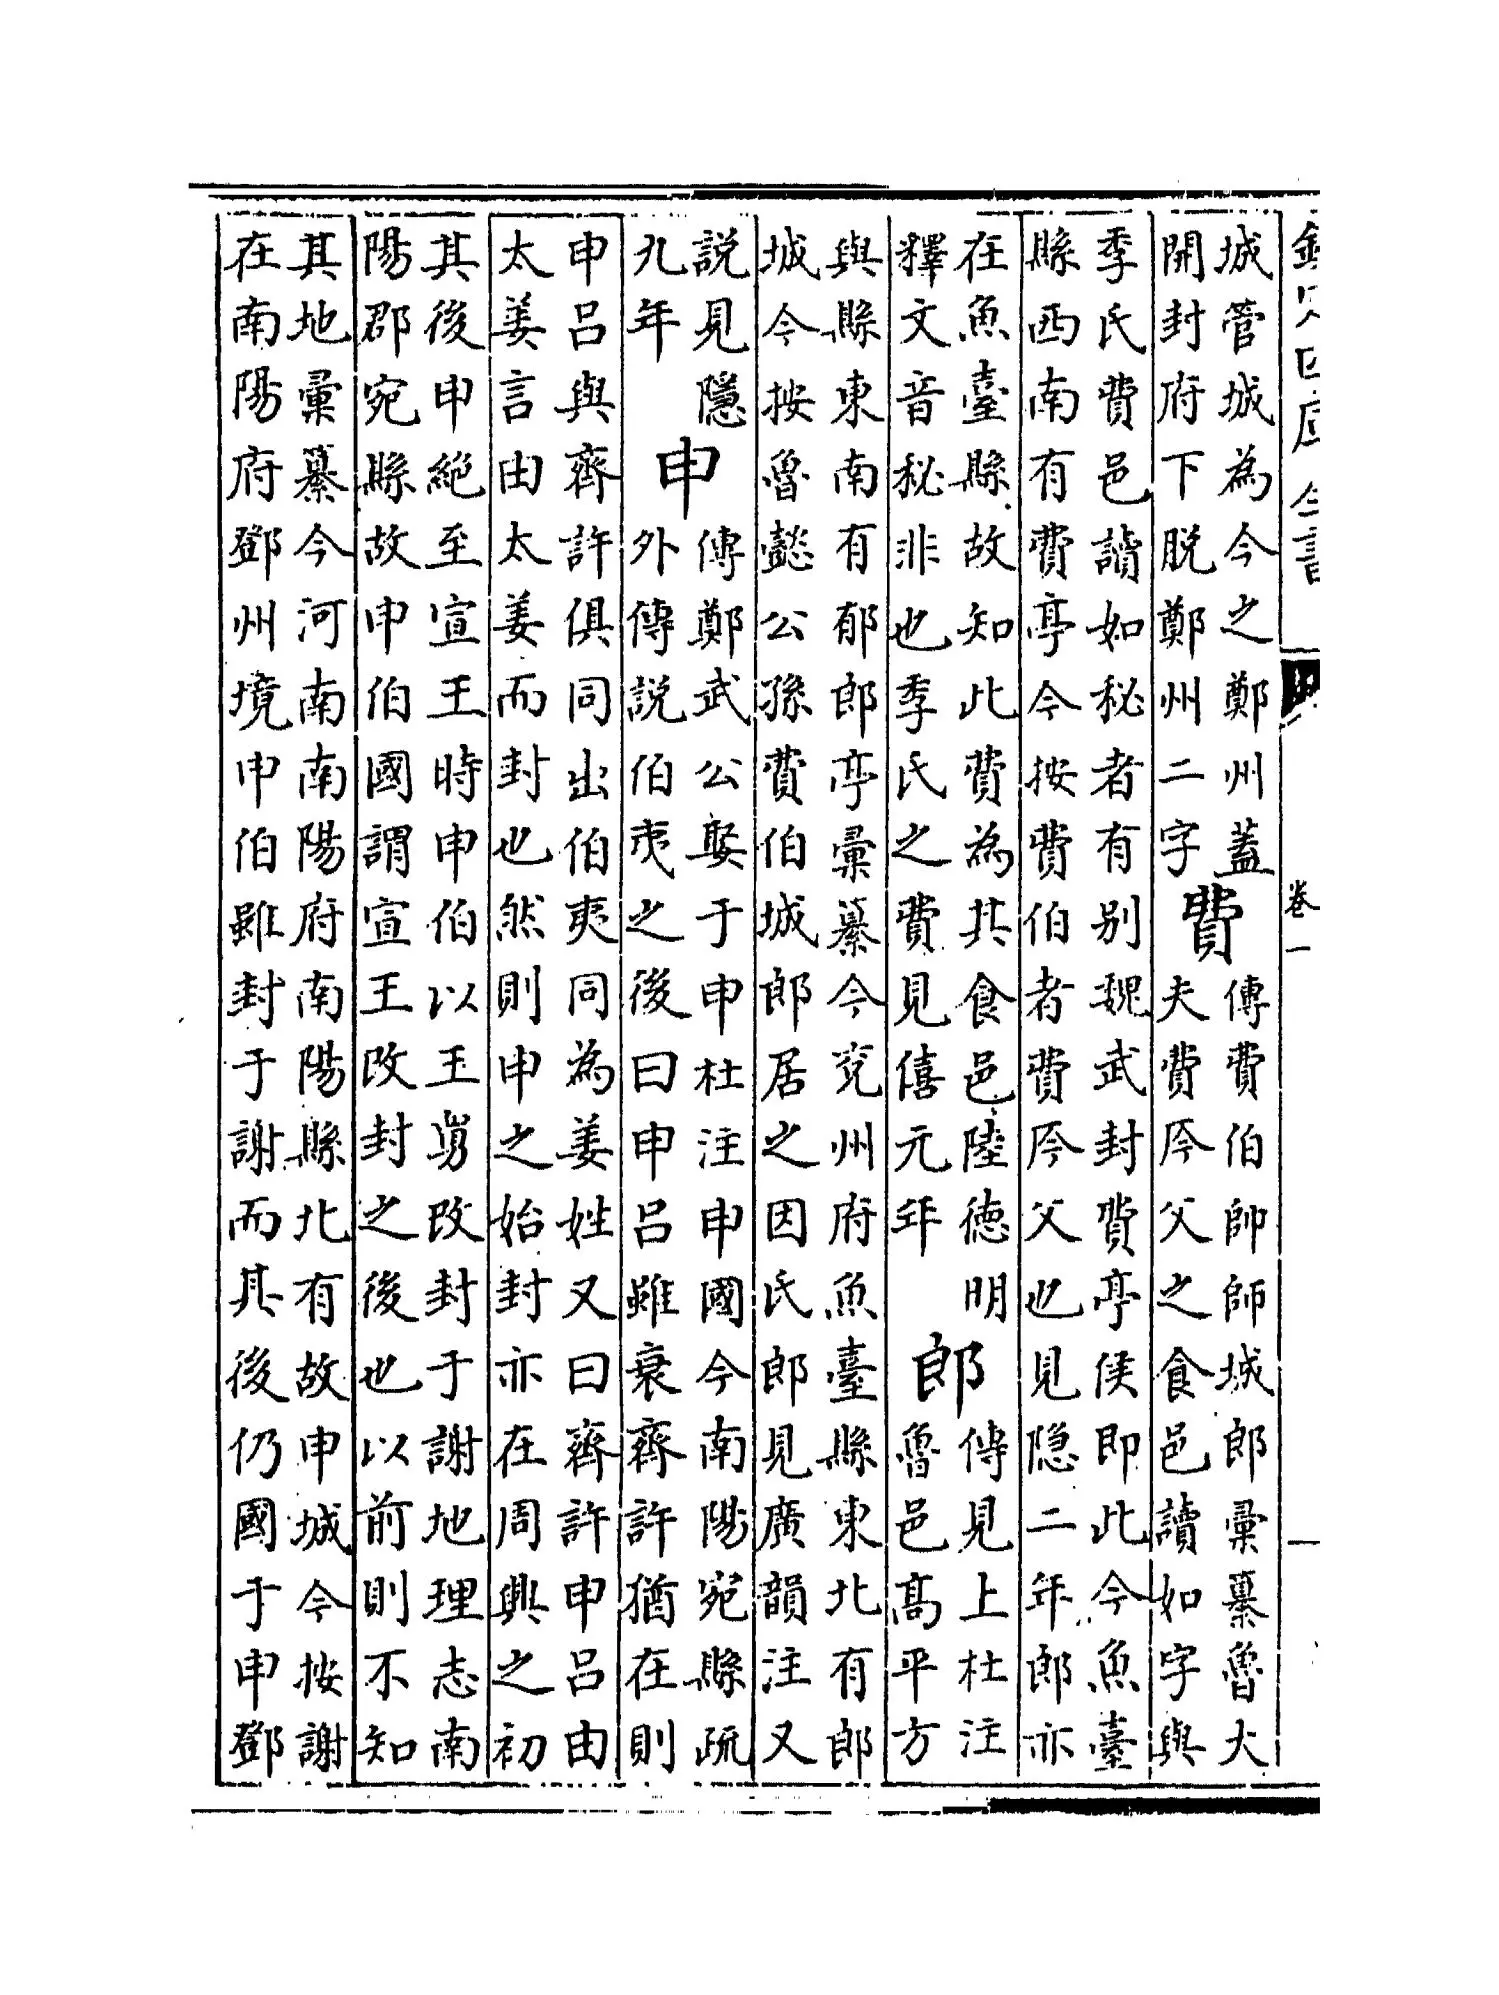 欽定四庫全書
卷一
城管城為今之鄭州蓋
開封府下脱鄭州二字
費
傳費伯帥師城郎彙纂魯大
夫費庈父之食邑讀如字與
季氏費邑讀如秘者有别魏武封費亭侯即此今魚臺
縣西南有費亭今按費伯者費庈父也見隐二年郎亦
在魚臺縣故知此費為其食邑陸德明
釋文音秘非也季氏之費見僖元年
郎
傳見上杜注
魯邑髙平方
與縣東南有郁郎亭彙纂今兖州府魚臺縣東北有郎
城今按魯懿公孫費伯城郎居之因氏郎見廣韻注又
説見隱
九年
申
傳鄭武公娶于申杜注申國今南陽宛縣疏
外傳説伯夷之後曰申吕雖衰齊許猶在則
申吕與齊許俱同出伯夷同為姜姓又曰齊許申吕由
太姜言由太姜而封也然則申之始封亦在周興之初
其後申絶至宣王時申伯以王舅改封于謝地理志南
陽郡宛縣故申伯國謂宣王改封之後也以前則不知
其地彙纂今河南南陽府南陽縣北有故申城今按謝
在南陽府鄧州境申伯雖封于謝而其後仍國于申鄧